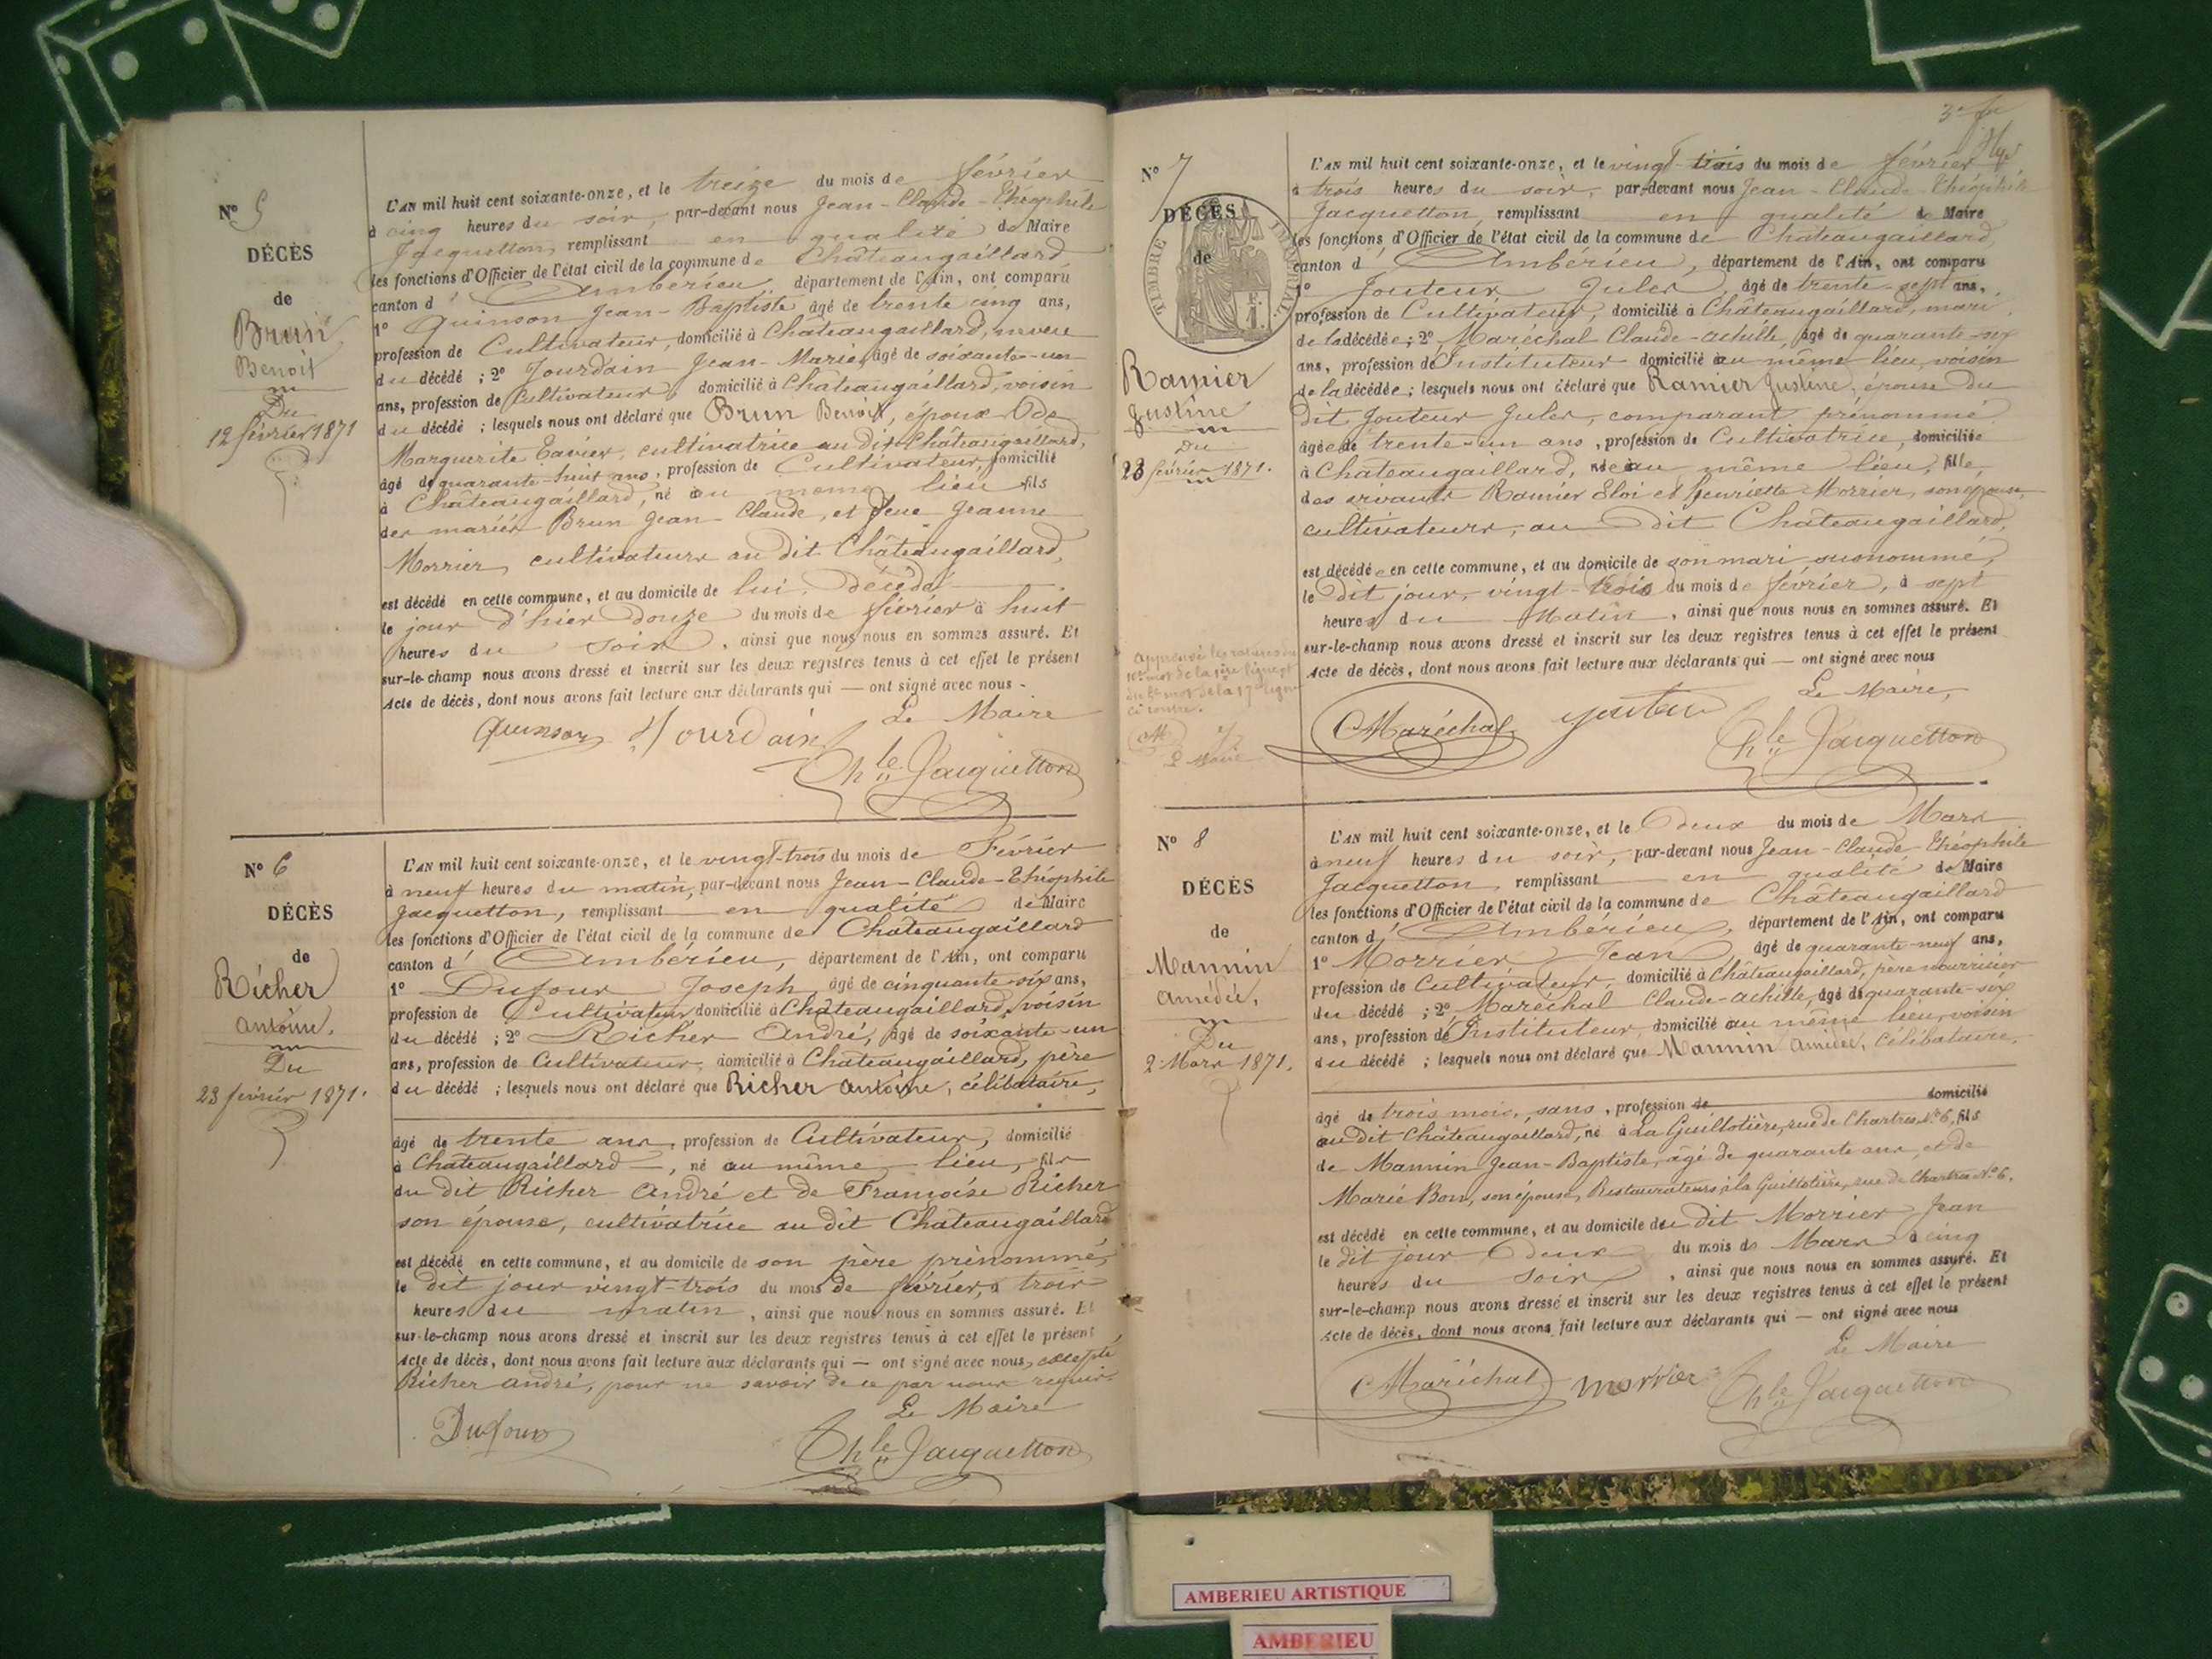 Nº 5
DÉCÈS
de
Brun
Benoit
Du
12 février 1871
L'AN mil huit cent soixante-onze, et le treize du mois de février
à cinq heures du soir, par-devant nous Jean-Claude-Théophile
Jacquetton, remplissant en qualité de Maire
les fonctions d'Officier de l'état civil de la commune de Châteaugaillard
canton d'Ambérieu, département de l'Ain, ont comparu
1º Quinson Jean-Baptiste âgé de trente cinq ans,
profession de Cultivateur, domicilié à Châteaugaillard, neveu
du décédé ; 2º Jourdain Jean-Marie, âgé de soixante-un
ans, profession de Cultivateur, domicilié à Châteaugaillard, voisin
du décédé ; lesquels nous ont déclaré que Brun Benoit, époux de
Marguerite Tavier, cultivatrice au dit Châteaugaillard,
âgé de quarante-huit ans, profession de Cultivateur, domicilié
à Châteaugaillard, né au même lieu fils
des mariés Brun Jean-Claude, et feue Jeanne
Morrier, cultivateurs au dit Châteaugaillard,
est décédé en cette commune, et au domicile de lui, décédé
le jour d'hier douze du mois de février à huit
heures du soir, ainsi que nous nous en sommes assuré. Et
sur-le-champ nous avons dressé et inscrit sur les deux registres tenus à cet effet le présent
Acte de décès, dont nous avons fait lecture aux déclarants qui — ont signé avec nous -
Le Maire
Quinson Jourdain
Thle Jacquetton
Nº 6
DÉCÈS
de
Richer
Antoine.
Du
23 février 1871.
L'AN mil huit cent soixante-onze, et le vingt-trois du mois de Février
à neuf heures du matin, par-devant nous Jean-Claude-Théophile
Jacquetton, remplissant en qualité de Maire
les fonctions d'Officier de l'état civil de la commune de Châteaugaillard
canton d'Ambérieu, département de l'Ain, ont comparu
1º Dufour Joseph, âgé de cinquante-six ans,
profession de Cultivateur domicilié à Châteaugaillard, voisin
du décédé ; 2º Richer André, âgé de soixante-un
ans, profession de Cultivateur, domicilié à Châteaugaillard, père
du décédé ; lesquels nous ont déclaré que Richer Antoine, célibataire,
âgé de trente ans, profession de Cultivateur, domicilié
à Châteaugaillard —, né au même lieu, fils
du dit Richer André et de Françoise Richer
son épouse, cultivatrice au dit Châteaugaillard
est décédé en cette commune, et au domicile de son père prénommé,
le dit jour vingt-trois du mois de février, à trois
heures du matin, ainsi que nous nous en sommes assuré. Et
sur-le-champ nous avons dressé et inscrit sur les deux registres tenus à cet effet le présent
Acte de décès, dont nous avons fait lecture aux déclarants qui — ont signé avec nous, excepté
Richer André, pour ne savoir de ce par nous requis.
Le Maire
Dufour
Thle Jacquetton
Nº 7
DÉCÈS
de
TIMBRE IMPÉRIAL
Ramier
Justine
Du
23 février 1871.
L'AN mil huit cent soixante-onze, et le vingt-trois du mois de février
à trois heures du soir, par-devant nous Jean-Claude-Théophile
Jacquetton, remplissant en qualité de Maire
les fonctions d'Officier de l'état civil de la commune de Châteaugaillard
canton d'Ambérieu, département de l'Ain, ont comparu
1º Jouteur Jules, âgé de trente-sept ans,
profession de Cultivateur, domicilié à Châteaugaillard, mari
de la décédée ; 2º Maréchal Claude-Achille, âgé de quarante-six
ans, profession d'Instituteur domicilié au même lieu, voisin
de la décédée ; lesquels nous ont déclaré que Ramier Justine, épouse du
dit Jouteur Jules, comparant prénommé
âgée de trente-un ans, profession de Cultivatrice, domiciliée
à Châteaugaillard, née au même lieu, fille
des vivants Ramier Eloi et Henriette Morrier, son épouse,
cultivateurs, au dit Châteaugaillard,
est décédée en cette commune, et au domicile de son mari susnommé,
le dit jour, vingt-trois du mois de février, à sept
heures du matin, ainsi que nous nous en sommes assuré. Et
sur-le-champ nous avons dressé et inscrit sur les deux registres tenus à cet effet le présent
Acte de décès, dont nous avons fait lecture aux déclarants qui — ont signé avec nous
Le Maire,
CMaréchal Jouteur
Thle Jacquetton
Le Maire
Nº 8
DÉCÈS
de
Mannin
Amédée,
Du
2 Mars 1871.
L'AN mil huit cent soixante-onze, et le deux du mois de Mars
à neuf heures du soir, par-devant nous Jean-Claude-Théophile
Jacquetton, remplissant en qualité de Maire
les fonctions d'Officier de l'état civil de la commune de Châteaugaillard
canton d'Ambérieu, département de l'Ain, ont comparu
1º Morrier Jean, âgé de quarante-neuf ans,
profession de Cultivateur, domicilié à Châteaugaillard, père nourricier
du décédé ; 2º Maréchal Claude-Achille, âgé de quarante-six
ans, profession d'Instituteur, domicilié au même lieu, voisin
du décédé ; lesquels nous ont déclaré que Mannin Amédée, célibataire,
âgé de trois mois, sans, profession de domicilié
au dit Châteaugaillard, né à La Guillotière, rue de Chartres, Nº 6, fils
de Mannin Jean-Baptiste, âgé de quarante ans, et de
Marie Bon, son épouse, Restaurateurs à la Guillotière, rue de Chartres Nº 6.
est décédé en cette commune, et au domicile du dit Morrier Jean
le dit jour deux du mois de Mars à cinq
heures du soir, ainsi que nous nous en sommes assuré. Et
sur-le-champ nous avons dressé et inscrit sur les deux registres tenus à cet effet le présent
Acte de décès, dont nous avons fait lecture aux déclarants qui — ont signé avec nous
Le Maire
CMaréchal morrier Thle Jacquetton
AMBERIEU ARTISTIQUE
AMBERIEU